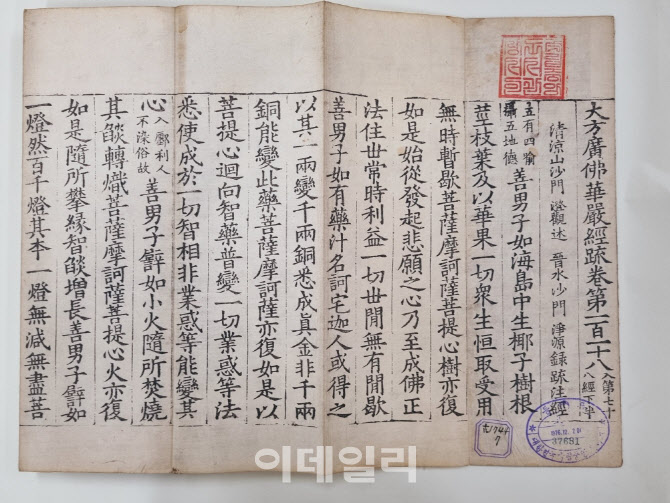 大方廣佛華嚴經䟽卷第一百一十八入第七十八經下半
清涼山沙門 澄觀述 晉水沙門 淨源録䟽注經
五有四喻
攝五地德 善男子如海島中生椰子樹根
莖枝葉及以華果一切衆生恒取受用
無時暫歇菩薩摩訶薩菩提心樹亦復
如是始從發起悲願之心乃至成佛正
法住世常時利益一切世閒無有閒歇
善男子如有藥汁名訶宅迦人或得之
以其一兩變千兩銅悉成真金非千兩
銅能變此藥菩薩摩訶薩亦復如是以
菩提心迴向智藥普變一切業惑等法
悉使成於一切智相非業惑等能變其
心入鄽利人
不染俗故 善男子譬如小火隨所焚燒
其燄轉熾菩薩摩訶薩菩提心火亦復
如是隨所攀緣智燄增長善男子譬如
一燈然百千燈其本一燈無減無盡菩
37681
이데일리